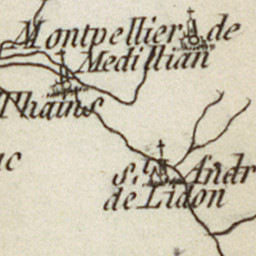 Montpellier de
Medillian
Thains
S.t Andr
de Lidon